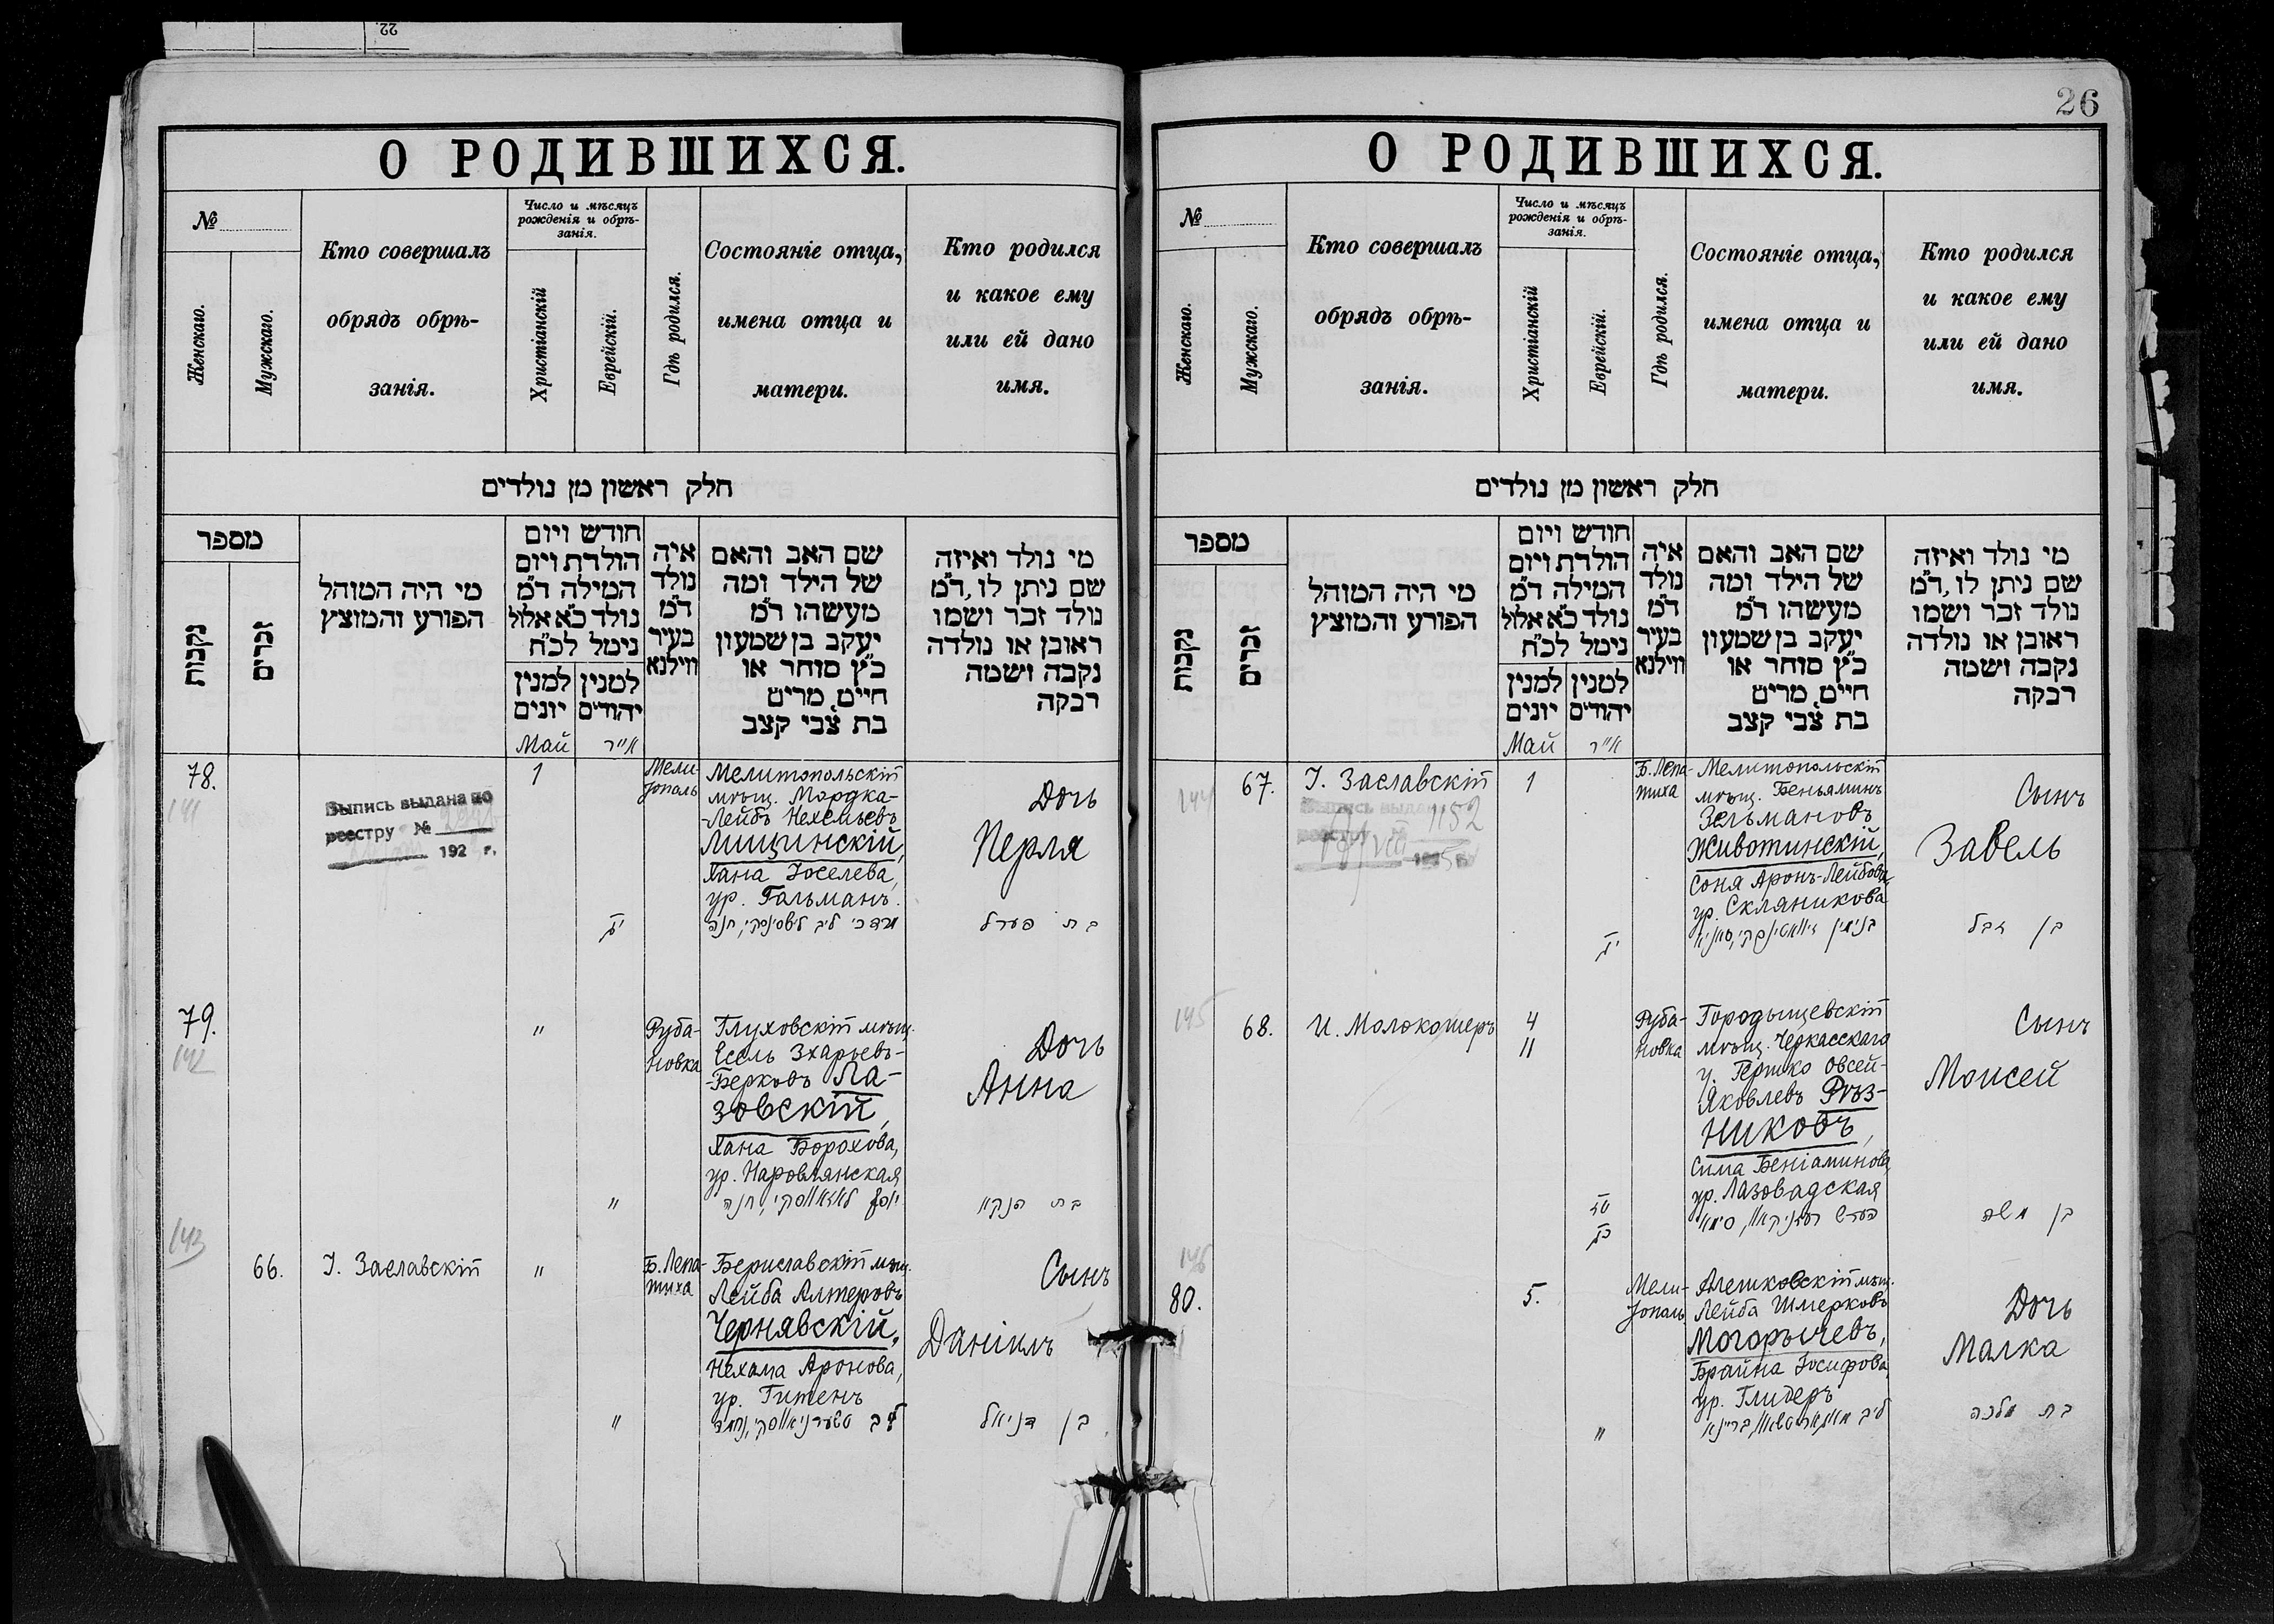 22
26
О РОДИВШИХСЯ.
№
Женскаго.
Мужскаго.
Кто совершалъ
обрядъ обрѣ-
занія.
Число и мѣсяцъ
рожденія и обрѣ-
занія.
Христіанскій
Еврейскій.
Гдѣ родился.
Состояніе отца,
имена отца и
матери.
Кто родился
и какое ему
или ей дано
имя.
חלק ראשון מן נולדים
מספר
נקבות
זכרים
מי היה המוהל
הפורע והמוצץ
חודש ויום
הולדת ויום
המילה ד"מ
נולד כ"א אלול
נימל לכ"ח
למנין
יונים
למנין
יהודים
איה
נולד
ד"מ
בעיר
ווילנא
שם האב והאם
של הילד ומה
מעשהו ד"מ
יעקב בן שמעון
כ"ץ סוחר או
חיים, מרים
בת צבי קצב
מי נולד ואיזה
שם ניתן לו, ד"מ
נולד זכר ושמו
ראובן או נולדה
נקבה ושמה
רבקה
Май
אייר
78.
141
Выпись выдана по
реестру №
192 г.
1
Мели-
тополь
Мелитопольскій
мѣщ. Мордка-
-Лейбъ Нехемьевъ
Лищинскій,
Хана Іоселева,
ур. Гальманъ.
Дочь
Перля
בת פערל
79.
142
"
Руба-
новка
Глуховскій мѣщ.
Есель Зхарьевъ-
-Берковъ Ла-
зовскій,
Хана Борохова,
ур. Наровлянская
Дочь
Анна
"
בת חנקא
143
66.
І. Заславскій
"
Б. Лепа-
тиха
Бериславскій мѣщ.
Лейба Алтеровъ
Чернявскій,
Нехама Аронова,
ур. Гитенъ
Сынъ
Даніилъ
"
בן דניאל
О РОДИВШИХСЯ.
№
Женскаго.
Мужскаго.
Кто совершалъ
обрядъ обрѣ-
занія.
Число и мѣсяцъ
рожденія и обрѣ-
занія.
Христіанскій
Еврейскій.
Гдѣ родился.
Состояніе отца,
имена отца и
матери.
Кто родился
и какое ему
или ей дано
имя.
חלק ראשון מן נולדים
מספר
נקבות
זכרים
מי היה המוהל
הפורע והמוצץ
חודש ויום
הולדת ויום
המילה ד"מ
נולד כ"א אלול
נימל לכ"ח
למנין
יונים
למנין
יהודים
איה
נולד
ד"מ
בעיר
ווילנא
שם האב והאם
של הילד ומה
מעשהו ד"מ
יעקב בן שמעון
כ"ץ סוחר או
חיים, מרים
בת צבי קצב
מי נולד ואיזה
שם ניתן לו, ד"מ
נולד זכר ושמו
ראובן או נולדה
נקבה ושמה
רבקה
Май
אייר
144
67.
І. Заславскій
1152
1
Б. Лепа-
тиха
Мелитопольскій
мѣщ. Беньяминъ
Зельмановъ
Животинскій,
Соня Аронъ-Лейбова,
ур. Скляникова
Сынъ
Завель
בן זבל
145
68.
И. Молокомеръ
4
11
Руба-
новка
Городыщевскій
мѣщ. Черкасскаго
у. Гершко Овсей-
Яковлевъ Рѣз-
никовъ,
Сима Беніаминова
ур. Лазовадская
Сынъ
Моисей
בן משה
146
80.
5.
Мели-
тополь
Алешковскій мѣщ.
Лейба Шмерковъ
Могорычевъ,
Брайна Іосифова,
ур. Глидеръ
Дочь
Малка
"
בת מלכה